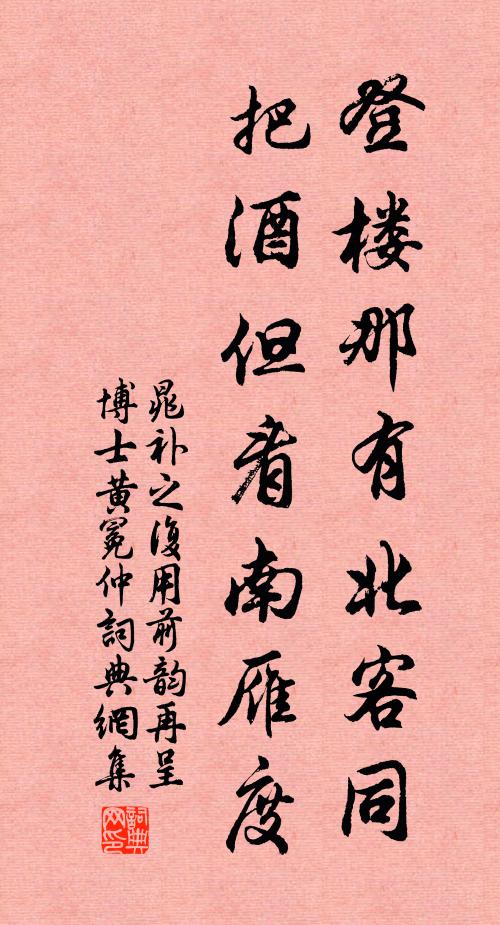 登楼那有北客同
把酒但看南雁度
晁补之復用前韵再呈
博士黄冕仲詞典網集
詞典
网印